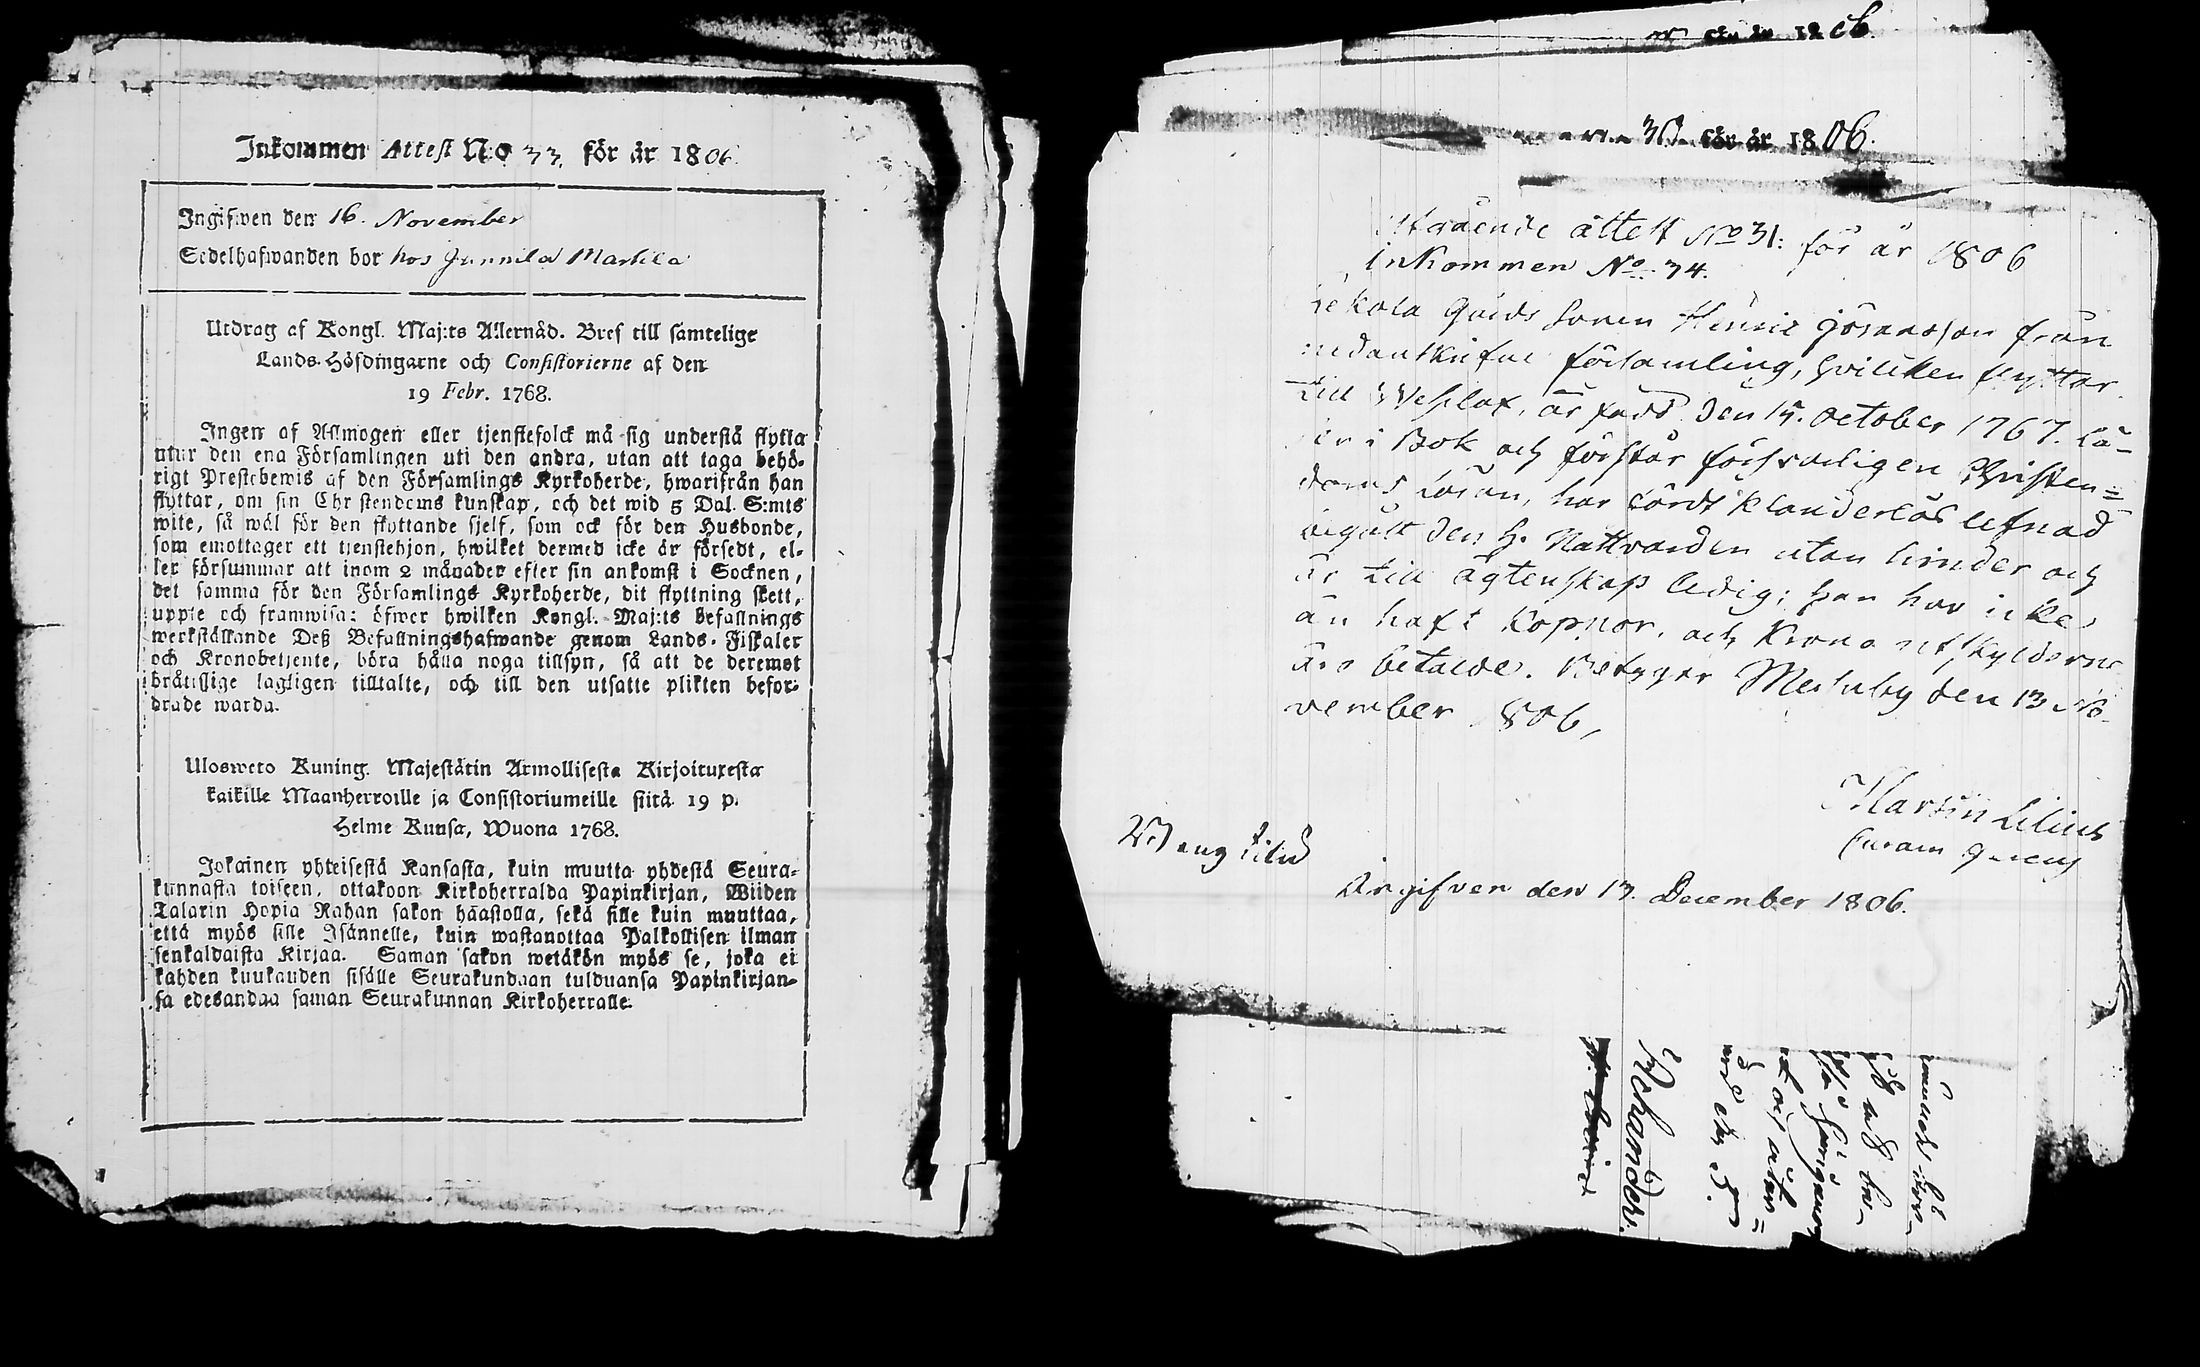 Inkommen Attest N:o 33. för år 1806.
Ingifwen den 16. November
Sedelhafwanden bor hos Junnila Marttila
Utdrag af Kongl. Maj:ts Allernåd. Bref till samtelige
Lands-Höfdingarne och Consistorierne af den
19 Febr. 1768.
Ingen af Allmogen eller tjenstefolck må sig understå flytta
utur den ena Församlingen uti den andra, utan att taga behö-
rigt Prestebewis af den Församlings Kyrkoherde, hwarifrån han
flyttar, om sin Christendoms kunskap, och det wid 5 Dal. S:mts
wite, så wäl för den flyttande sjelf, som ock för den Husbonde,
som emottager ett tjenstehjon, hwilket dermed icke är försedt, el-
ler försummar att inom 2 månader efter sin ankomst i Socknen,
det samma för den Församlings Kyrkoherde, dit flyttning skett,
uppte och framwisa: öfwer hwilken Kongl. Maj:ts befallnings
werkställande Deß Befallningshafwande genom Lands-Fiskaler
och Kronobetjente, böra hålla noga tillsyn, så att de deremot
bråttslige lagligen tilltalte, och till den utsatte plikten befor-
drade warda.
Ulosweto Kuning. Majestätin Armollisesta Kirjoituxesta
kaikille Maanherroille ja Consistoriumeille siitä 19 p.
Helme Kuusa, Wuona 1768.
Jokainen yhteisestä Kansasta, kuin muutta yhdestä Seura-
kunnasta toiseen, ottakoon Kirkoherralda Papinkirjan, Wiiden
Talarin Hopia Rahan sakon haastolla, sekä sille kuin muuttaa,
että myös sille Isännelle, kuin wastanottaa Palkollisen ilman
senkaldaista Kirjaa. Saman sakon wetäkön myös se, joka ei
kahden kuukauden sisälle Seurakundaan tulduansa Papinkirjan-
sa edesandaa saman Seurakunnan Kirkoherralle.
1806.
30 för år 1806.
Utgående attest No 31: för år 1806
inkommen No 34.
Henric Göransson från
församling, hvilcken flyttar
till är född den 15. October 1767. Lä-
ser i Bok och förstår försvarligen Christen-
doms Läran, har fördt klanderlös lefnad
begått den H. Nattvarden utan hinder och
är till ägtenskap ledig; han har icke
än haft Koppor, och Krono utskylderne
äro betalde. Betygar Mechuby den 13 No-
vember 1806,
Martin Lilius
Curam gerens
Angifven den 13. December 1806.